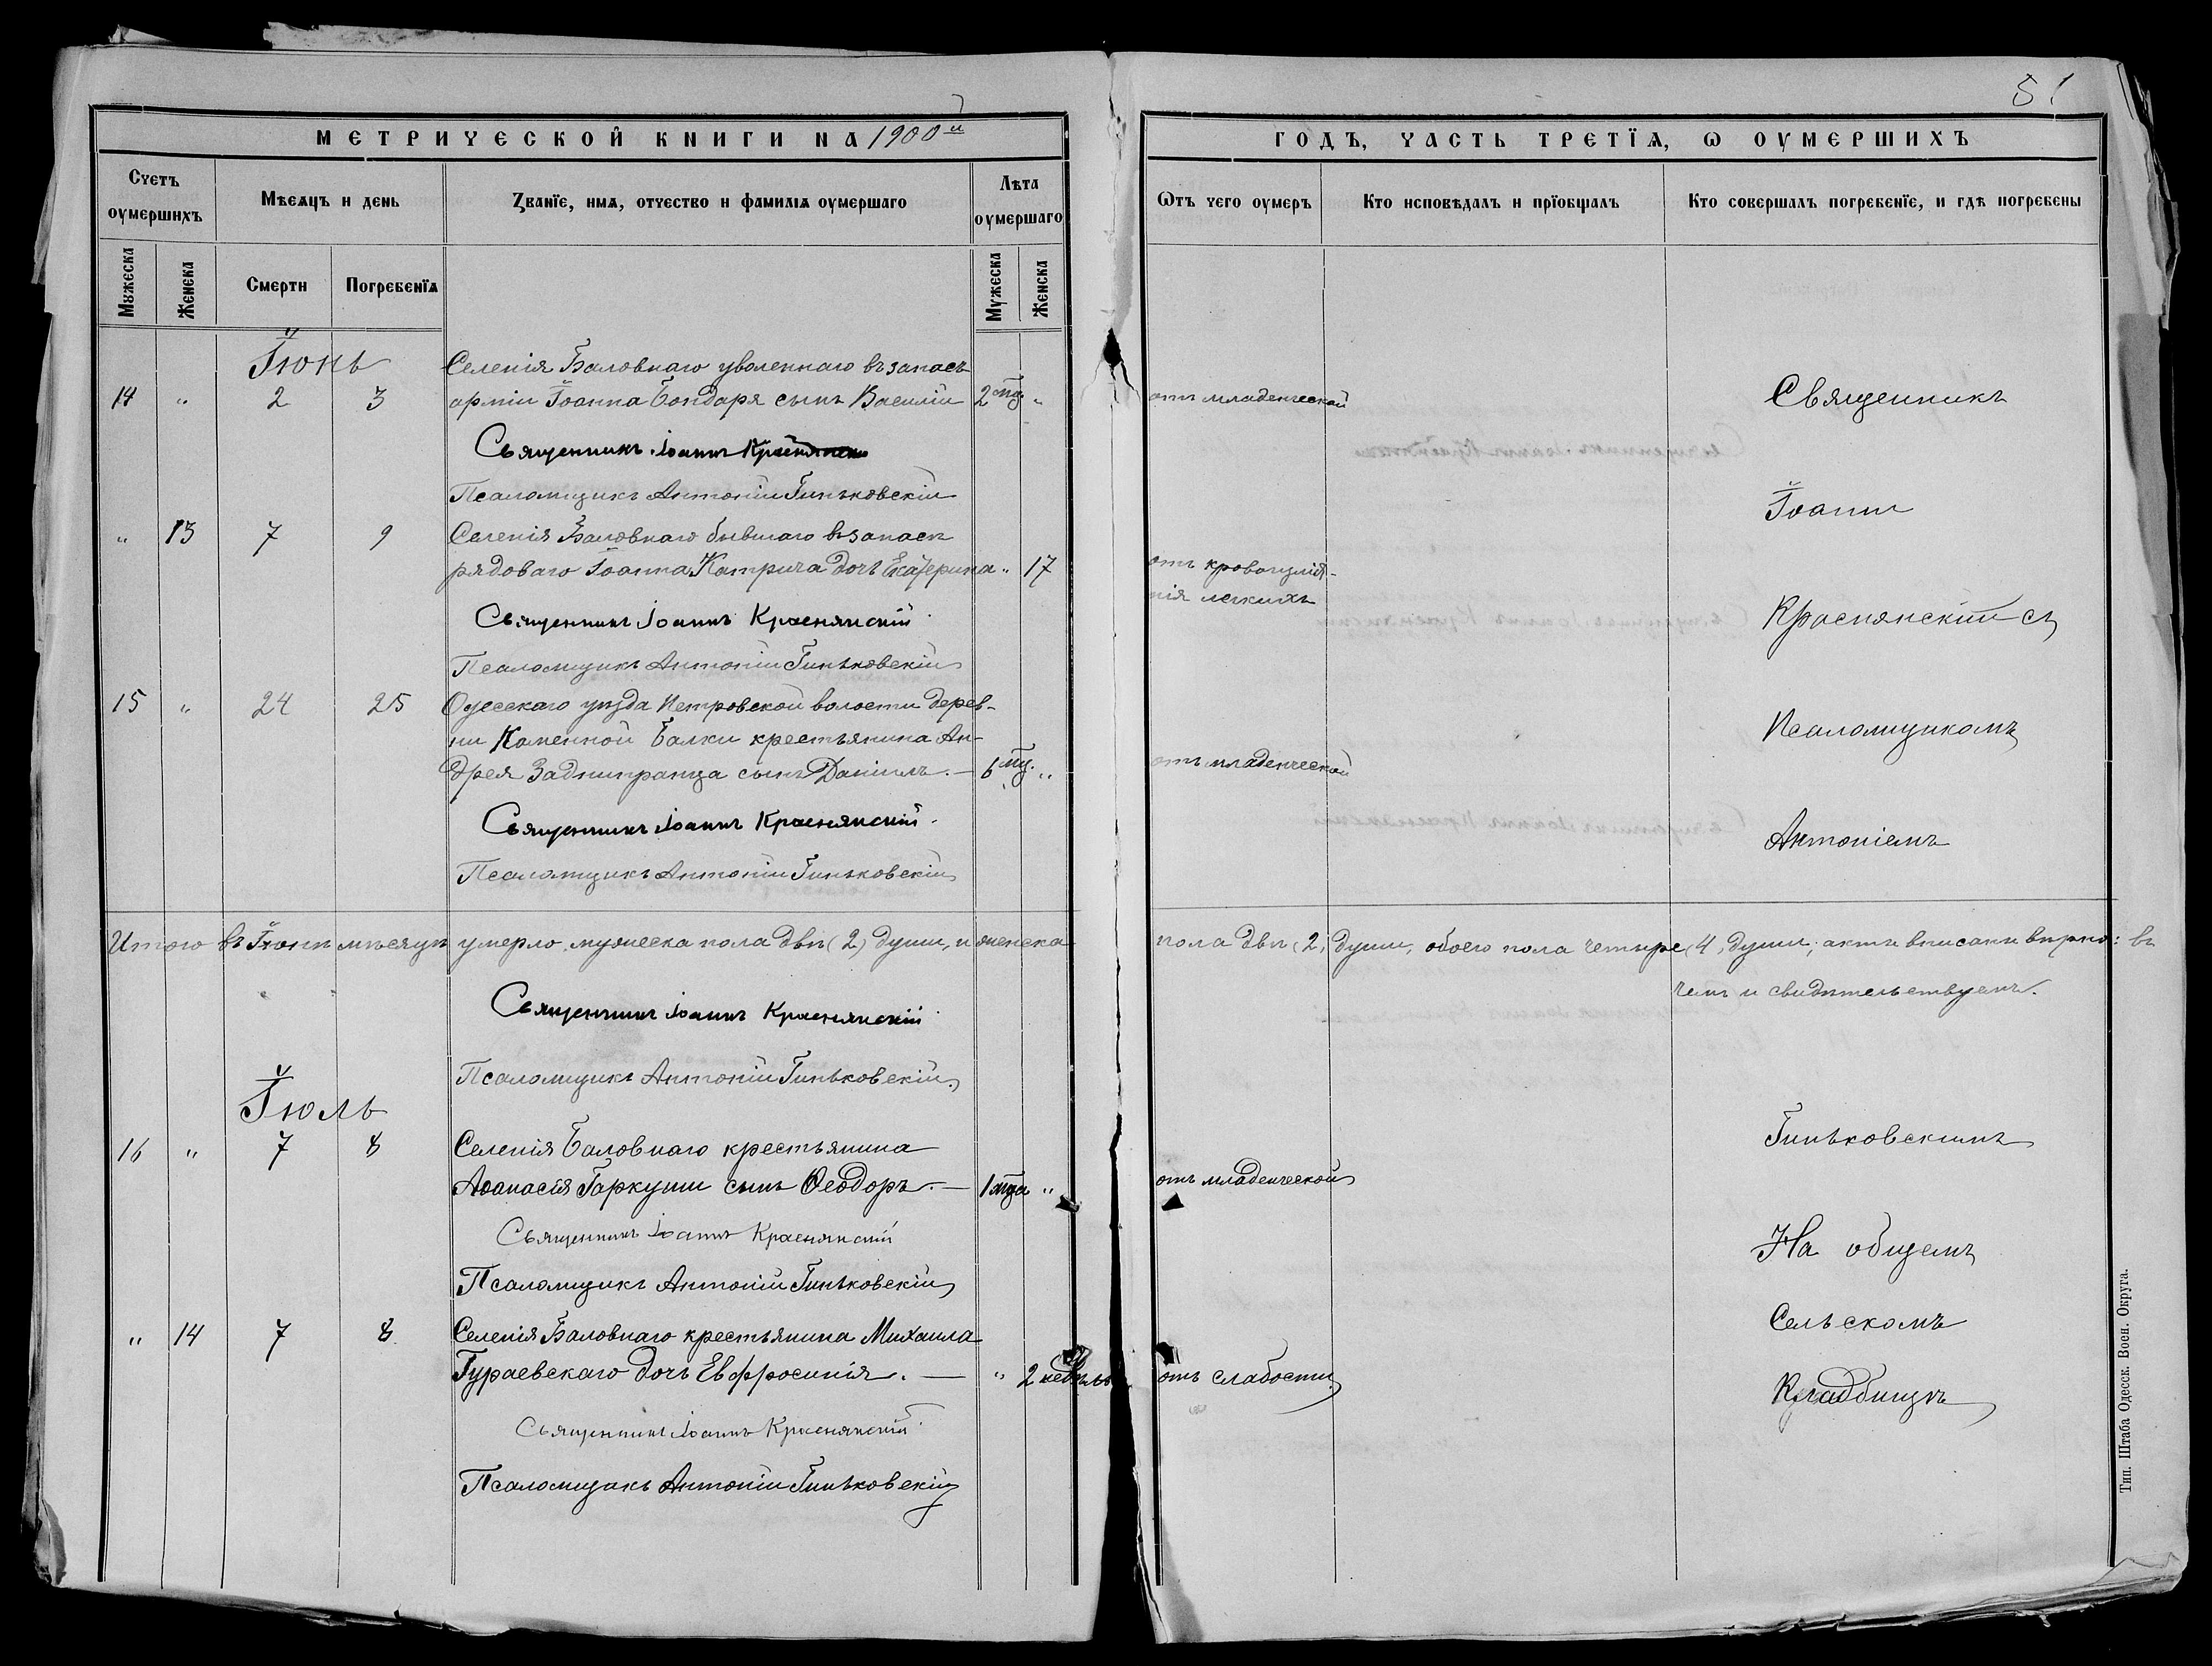 51
МЕТРИЧЕСКОЙ КНИГИ НА 1900й
ГОДЪ, ЧАСТЬ ТРЕТІѦ, Ѡ ОУМЕРШИХЪ
Счетъ оумершихъ
Мѣсяцъ и день
Званїе, имѧ, отчество и фамилїѧ оумершаго
Лѣта оумершаго
Ѿтъ чего оумеръ
Кто исповѣдалъ и прїобщалъ
Кто совершалъ погребенїе, и гдѣ погребены
Мужеска
Женска
Смерти
Погребенїѧ
Мужеска
Женска
Іюнь
Селенія Баловнаго уволеннаго въ запасъ
14 " 2 3 арміи Іоанна Бондаря сынъ Василій 2 мц. " отъ младенческой
Священникъ Іоаннъ Краснянскій
Псаломщикъ Антоній Гиньковскій
" 13 7 9 Селенія Баловнаго бывшаго въ запасѣ
рядоваго Іоанна Катрича дочь Екатерина " 17 отъ кровоизлія-
нія легкихъ
Священникъ Іоаннъ Краснянскій
Псаломщикъ Антоній Гиньковскій
15 " 24 25 Одесскаго уѣзда Петровской волости дерев-
ни Каменной Балки крестьянина Ан-
дрея Заднипранца сынъ Даніилъ. — 6 мц. " отъ младенческой
Священникъ Іоаннъ Краснянскій
Псаломщикъ Антоній Гиньковскій
Итого въ Іюнѣ мѣсяцѣ умерло мужеска пола двѣ (2) души, и женска пола двѣ (2) души, обоего пола четыре (4) души; акты вписаны вѣрно: въ
чемъ и свидѣтельствуемъ.
Священникъ Іоаннъ Краснянскій
Псаломщикъ Антоній Гиньковскій
Іюль
16 " 7 8 Селенія Баловнаго крестьянина
Аѳанасія Гаркуши сынъ Ѳеодоръ. — 1 мца " отъ младенческой
Священникъ Іоаннъ Краснянскій
Псаломщикъ Антоній Гиньковскій
" 14 7 8 Селенія Баловнаго крестьянина Михаила
Гураевскаго дочь Евфросинія. — " 2 недѣль отъ слабости
Священникъ Іоаннъ Краснянскій
Псаломщикъ Антоній Гиньковскій
Священникъ
Іоаннъ
Краснянскій съ
Псаломщикомъ
Антоніемъ
Гиньковскимъ
На общемъ
Сельскомъ
Кладбищѣ
Тип. Штаба Одесск. Воен. Округа.